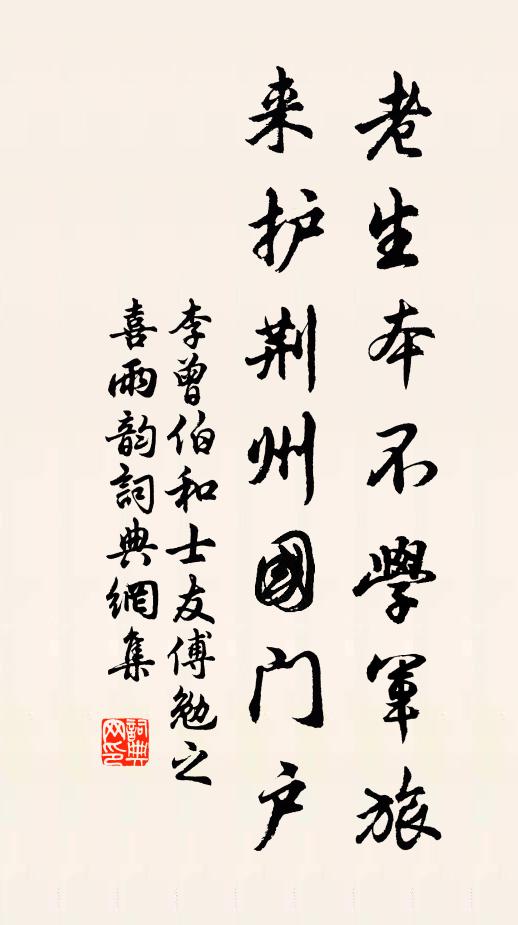 老生本不學軍旅
来护荆州國门户
李曾伯和士友傅勉之
喜雨韵詞典網集
詞典网印